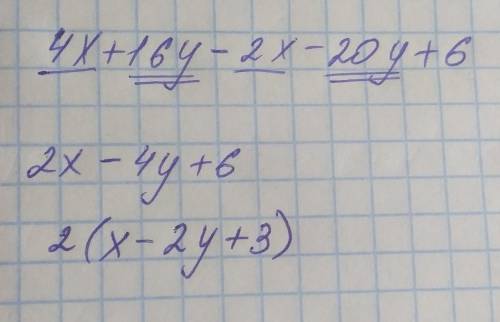 4x+16y-2x-20y+6
2x-4y+6
2(x-2y+3)